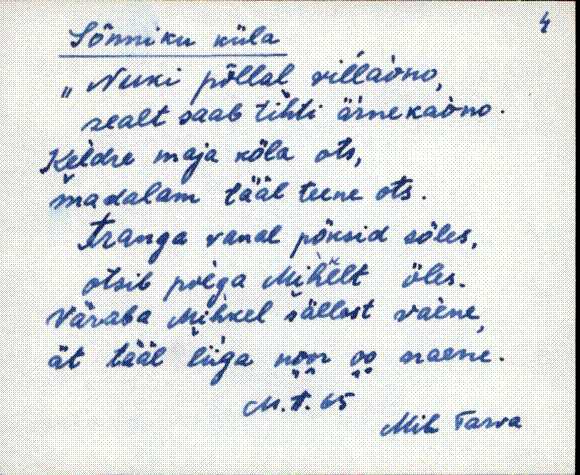 4
Sõnniku küla
„Nuki põllal villaòno,
sealt saab tihti ärnekaòno.
Keldre maja köla ots,
madalam tääl teene ots.
Tranga vanal pöksid söles,
otsib poèga Mihèlt öles.
Väraba Mihkel sällest vaène,
ät tääl liiga noor oo naene.
M.T. 65
Mih Tarva